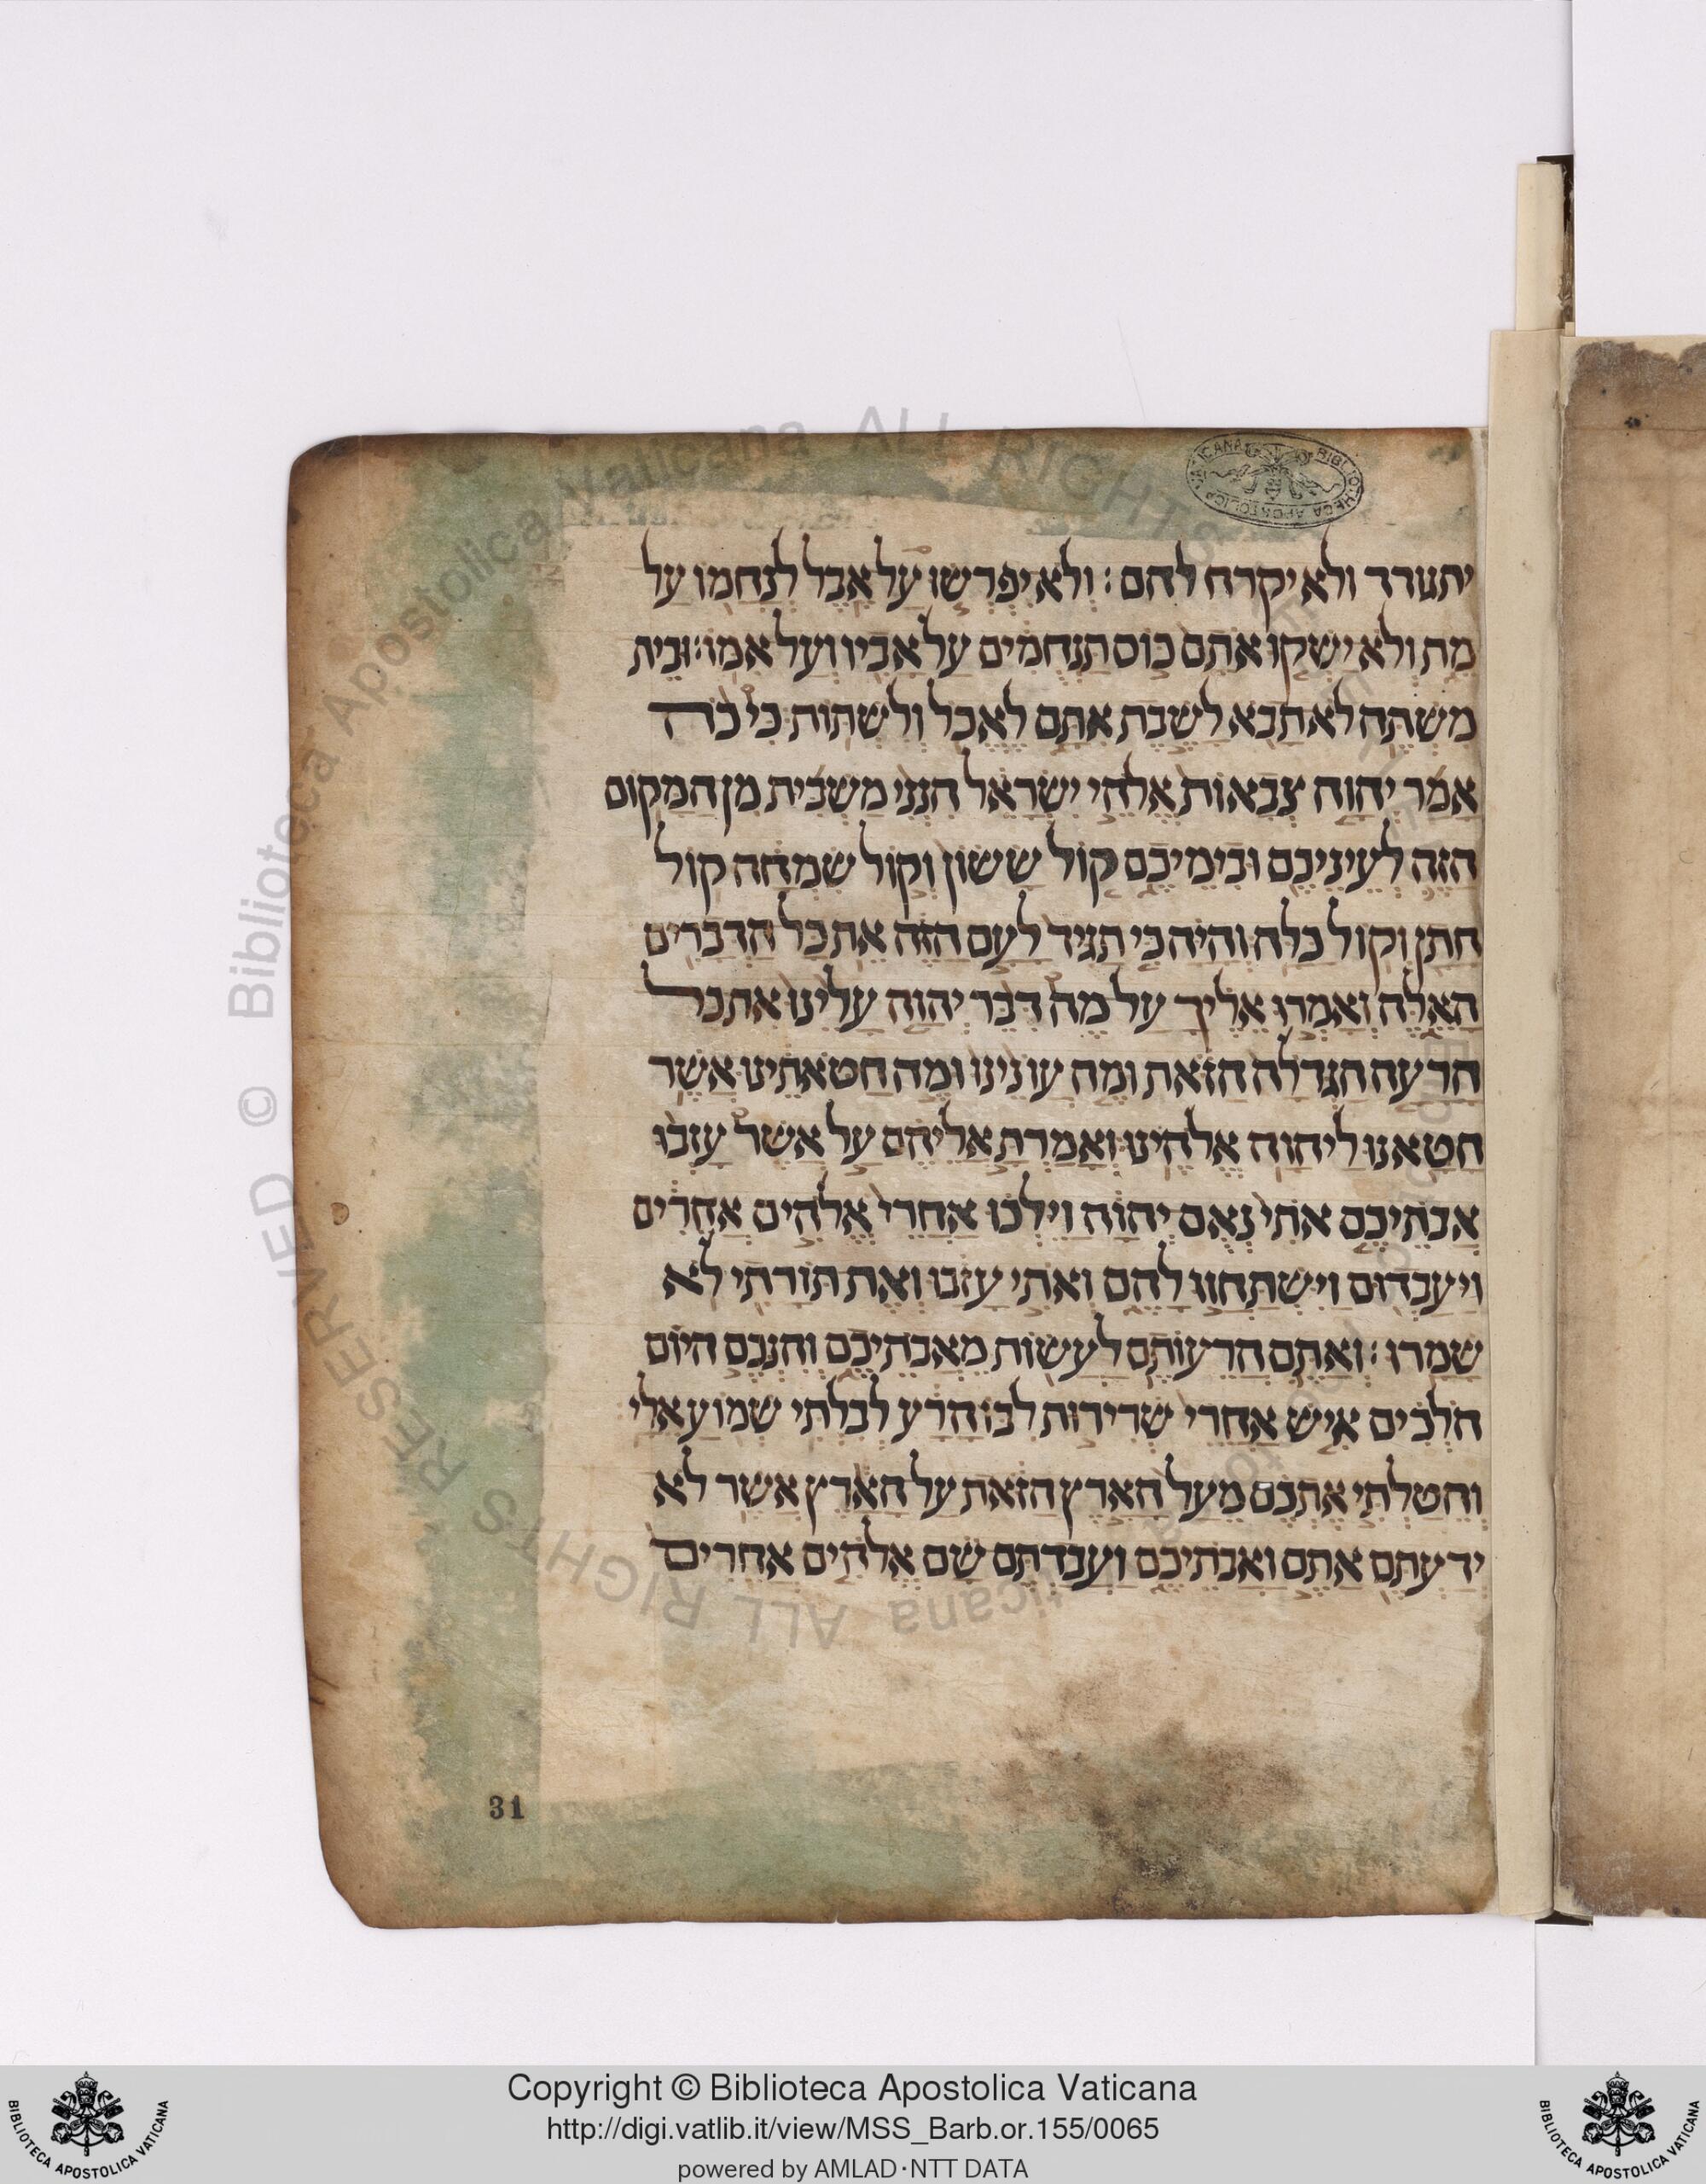 יתגדד ולא יקרח להם׃ וְלֹא יִפְרְשׂוּ עַל אֵבֶל לְנַחֲמוֹ עַל
מֵת וְלֹא יַשְׁקוּ אֹתָם כּוֹס תַּנְחֻמִים עַל אָבִיו וְעַל אִמּוֹ׃ וּבֵית
מִשְׁתֶּה לֹא תָבֹא לָשֶׁבֶת אִתָּם לֶאֱכֹל וְלִשְׁתּוֹת׃ כִּי כֹה
אָמַר יְהוָה צְבָאוֹת אֱלֹהֵי יִשְׂרָאֵל הִנְנִי מַשְׁבִּית מִן הַמָּקוֹם
הַזֶּה לְעֵינֵיכֶם וּבִימֵיכֶם קוֹל שָׂשׂוֹן וְקוֹל שִׂמְחָה קוֹל
חָתָן וְקוֹל כַּלָּה׃ וְהָיָה כִּי תַגִּיד לָעָם הַזֶּה אֵת כָּל הַדְּבָרִים
הָאֵלֶּה וְאָמְרוּ אֵלֶיךָ עַל מֶה דִבֶּר יְהוָה עָלֵינוּ אֵת כָּל
הָרָעָה הַגְּדֹלָה הַזֹּאת וּמֶה עֲוֹנֵינוּ וּמֶה חַטֹּאתֵינוּ אֲשֶׁר
חָטָאנוּ לַיהוָה אֱלֹהֵינוּ׃ וְאָמַרְתָּ אֲלֵיהֶם עַל אֲשֶׁר עָזְבוּ
אֲבֹתֵיכֶם אֹתִי נְאֻם יְהוָֹה וַיֵּלְכוּ אַחֲרֵי אֱלֹהִים אֲחֵרִים
וַיַּעַבְדוּם וַיִּשְׁתַּחֲווּ לָהֶם וְאֹתִי עָזָבוּ וְאֶת תּוֹרָתִי לֹא
שָׁמָרוּ׃ וְאַתֶּם הֲרֵעוֹתֶם לַעֲשׂוֹת מֵאֲבֹתֵיכֶם וְהִנְּכֶם הַיּוֹם
הֹלְכִים אִישׁ אַחֲרֵי שְׁרִירוּת לִבּוֹ הָרָע לְבִלְתִּי שְׁמוֹעַ אֵלָי
וְהֵטַלְתִּי אֶתְכֶם מֵעַל הָאָרֶץ הַזֹּאת עַל הָאָרֶץ אֲשֶׁר לֹא
יְדַעְתֶּם אַתֶּם וַאֲבֹתֵיכֶם וַעֲבַדְתֶּם שָׁם אֱלֹהִים אֲחֵרִים
31
Copyright © Biblioteca Apostolica Vaticana
http://digi.vatlib.it/view/MSS_Barb.or.155/0065
powered by AMLAD·NTT DATA